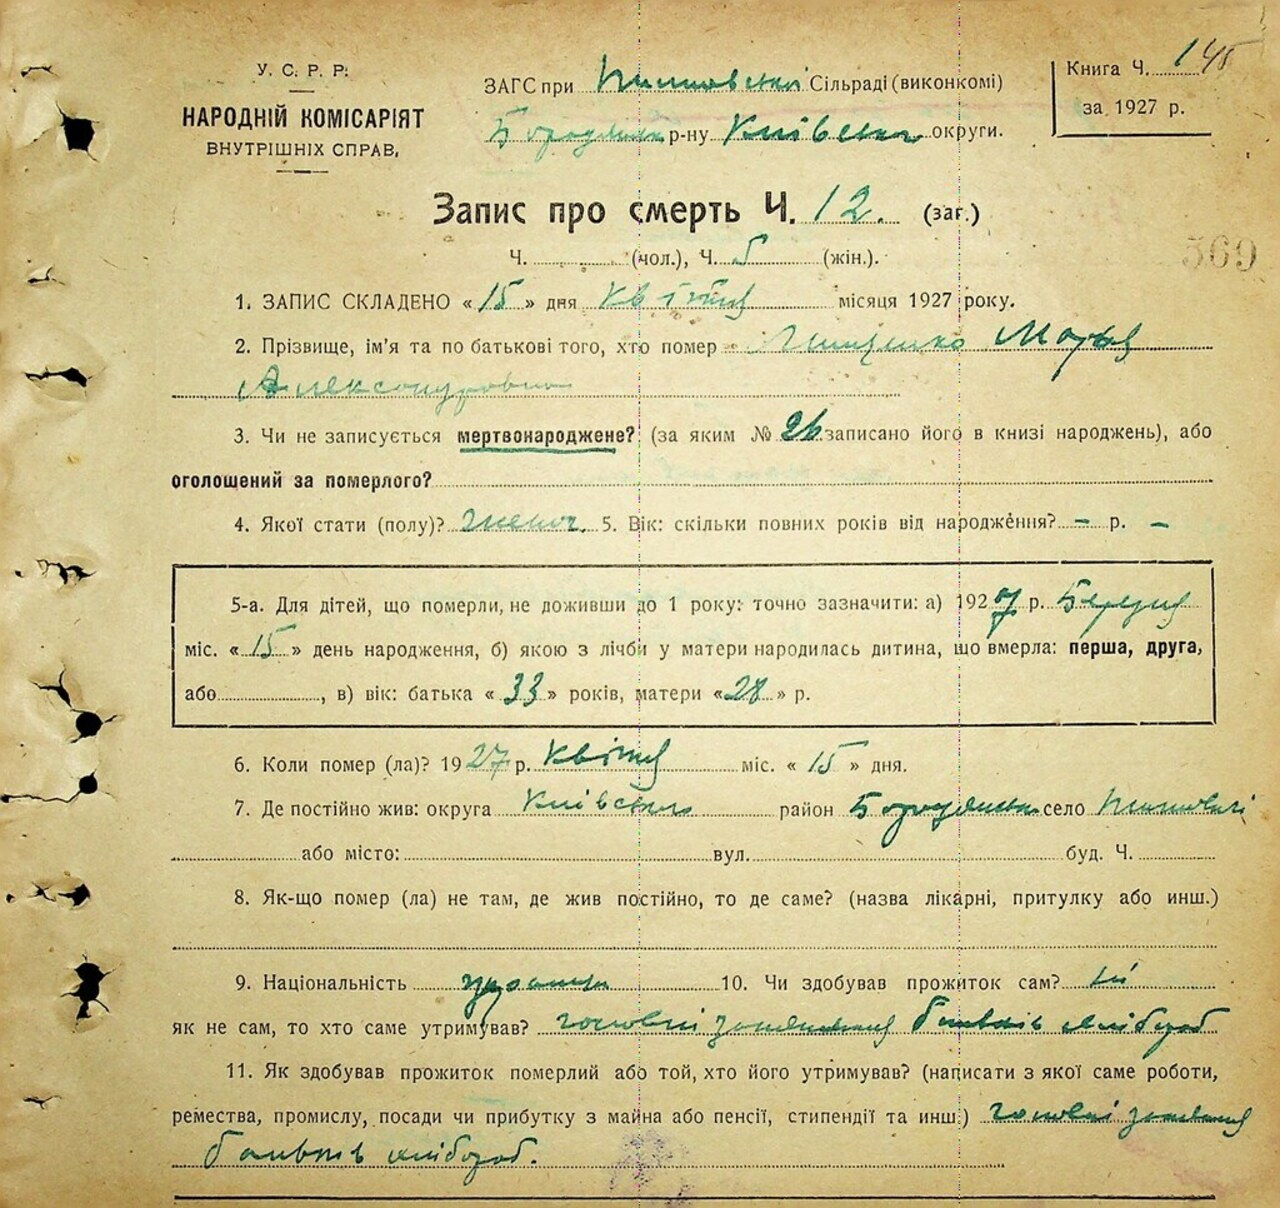 У. С. Р. Р.
НАРОДНІЙ КОМІСАРІЯТ
ВНУТРІШНІХ СПРАВ,
ЗАГС при Сільраді (виконкомі)
р-ну Київської округи.
Книга Ч. 1 145
за 1927 р.
Запис про смерть Ч. 12. (заг.)
Ч. (чол.), Ч. 5 (жін.).
569
1. ЗАПИС СКЛАДЕНО « 15 » дня Квітня місяця 1927 року.
2. Прізвище, ім'я та по батькові того, хто помер Марія
Александровна
3. Чи не записується мертвонароджене? (за яким № 26 записано його в книзі народжень), або
оголошений за померлого?
4. Якої стати (полу)? женоч. 5. Вік: скільки повних років від народження? – р. –
5-а. Для дітей, що померли, не доживши до 1 року: точно зазначити: а) 1927 р. Березня
міс. « 15 » день народження, б) якою з лічби у матери народилась дитина, що вмерла: перша, друга,
або , в) вік: батька « 33 » років, матери « 28 » р.
6. Коли помер (ла)? 1927 р. Квітня міс. « 15 » дня.
7. Де постійно жив: округа Київська район Бородянськ село
або місто: вул. буд. Ч.
8. Як-що помер (ла) не там, де жив постійно, то де саме? (назва лікарні, притулку або инш.)
9. Національність 10. Чи здобував прожиток сам? ні
як не сам, то хто саме утримував? головні заняття батьків хлібороб
11. Як здобував прожиток померлий або той, хто його утримував? (написати з якої саме роботи,
ремества, промислу, посади чи прибутку з майна або пенсії, стипендії та инш.) головні заняття
батьків хлібороб.